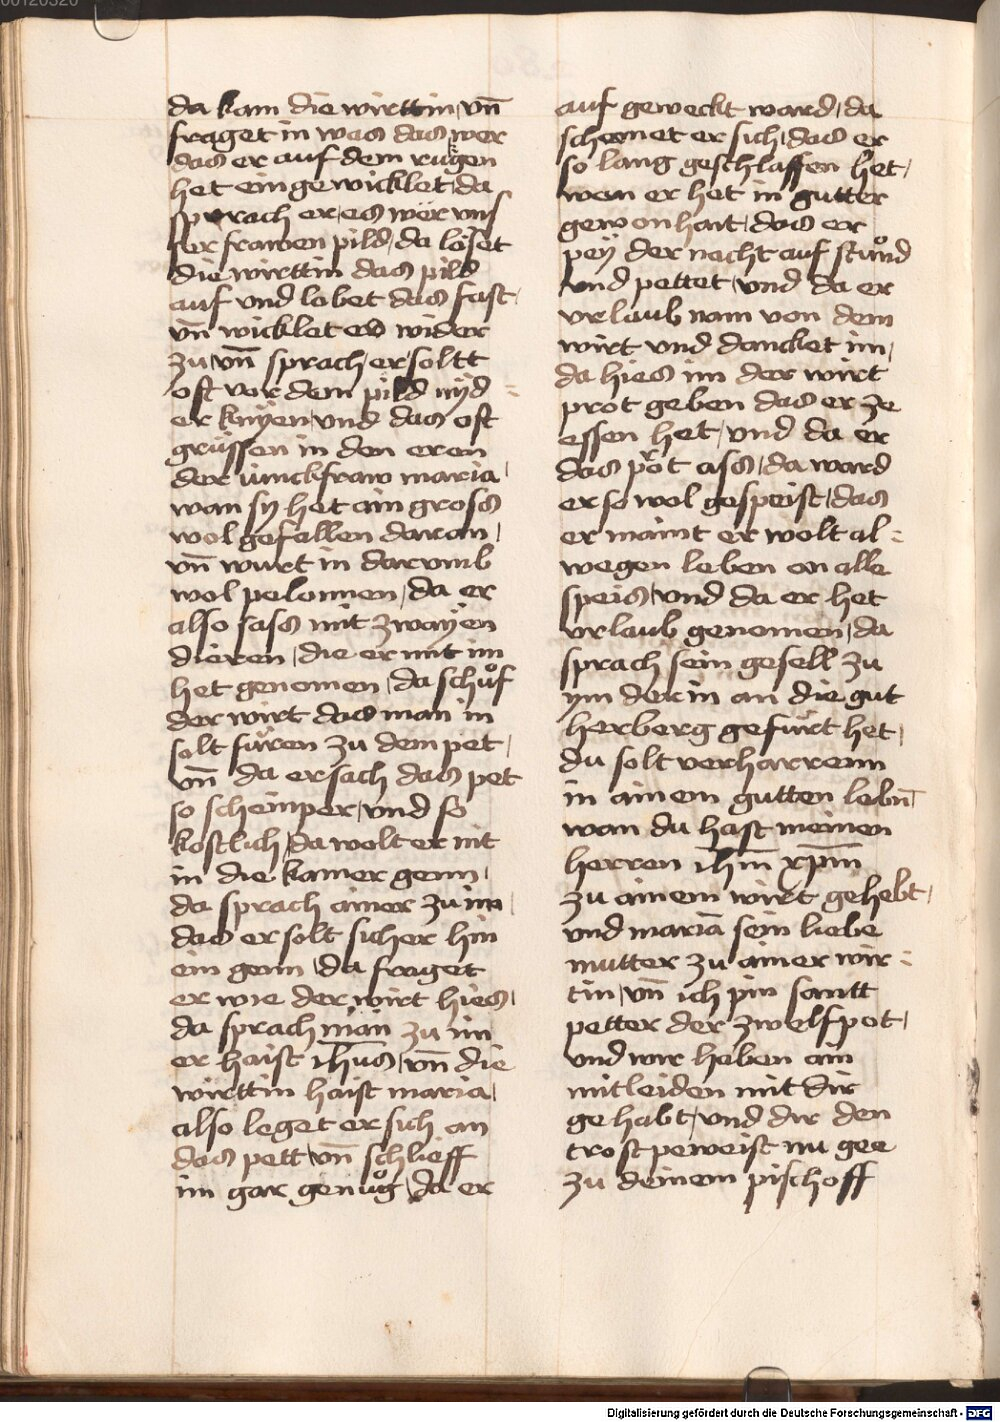 da kam die wirttin, vn̄
fraget in was das wer
das er auf dem rugen
het ein gewicklet, da
sprach er, es wer vns
ser frawen pild, da löset
die wirttin das pild
auf vnd lobet das fast,
vn̄ wicklet es wider
zu, vn̄ sprach, er soltt
oft vor dem pild nyd =
er knyen, vnd das oft
grüssen in den eren
der iunckfraw maria,
wan sy het ain gross
wolgefallen daran,
vn̄ wurt in darumb
wol pelonnen, da er
also sass mit zwayen
dieren, die er mit im
het genomen, da schůf
der wirt das man in
solt füren zu dem pet,
vn̄ da er sach das pet
so scheinper, vnd so
kostlich, da wolt er nit
in die kamer genn,
da sprach ainer zu im,
das er solt sicher hin
ein genn, da fraget
er wie der wirt hies,
da sprach man zu im
er haist ih̄us, vn̄ die
wirttin haist maria,
also leget er sich an
das pett, vn̄ schlieff
im gar genůg, da er
auf geweckt ward, da
schemet er sich, das er
so lang geschlaffen het,
wan er het in gutter
gewonhait, das er
pey der nacht auf stůnd
vnd pettet, vnd da er
vrlaub nam von dem
wirt vnd dancket im,
da hies im der wirt
prot geben das er ze
essen het, vnd da er
das prot ass, da ward
er so wol gespeist, das
er maint er wolt al =
wegen leben on alle
speis, vnd da er het
vrlaub genomen, da
sprach sein gesell zu
ym der in an die gut
herberg gefürt het,
du solt verharrenn
in ainem gutten lebn̄
wan du hast meinen
herren ih̄m xp̄m
zu ainem wirt gehebt,
vnd mariā sein liebe
mutter zu ainer wir =
tin, vn̄ ich pin santt
petter der zwelfpot,
vnd wir heben ain
mitleiden mit dir
gehabt, vnd dir den
trost peweist nu gee
zu deinem pischoff
Digitalisierung gefördert durch die Deutsche Forschungsgemeinschaft - DFG